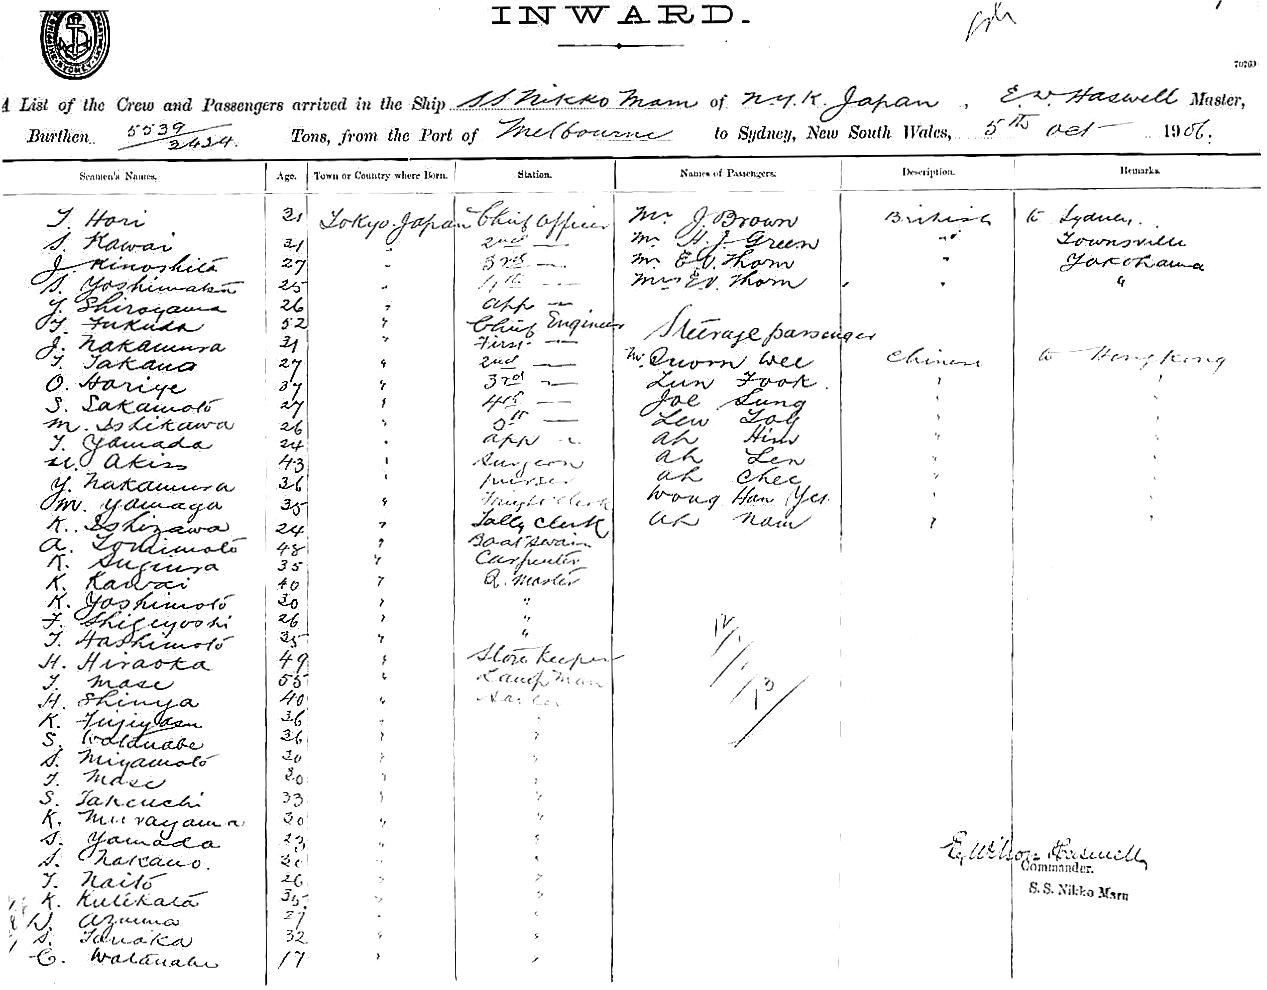 INWARD.
70763
A List of the Crew and Passengers arrived in the Ship SS Nikko Maru of N.Y.K. Japan, E. W. Haswell Master,
Burthen 5539/3434. Tons, from the Port of Melbourne to Sydney, New South Wales, 5th Oct 1906.
Seamen's Names. Age. Town or Country where Born. Station. Names of Passengers. Description. Remarks.
T. Hori 31 Tokyo Japan Chief Officer Mr J. Brown British to Sydney.
S. Kawai 31 " 2nd — Mr H. J. Green " Townsville
J. Kinoshita 27 " 3rd — Mr E V. Thom " Yokohama
S. Yoshimaka 25 " 4th — Mrs E V. Thom " "
Y. Shiroyama 26 " app —
T. Fukuda 52 " Chief Engineer Steerage passenger
J. Nakamura 31 " First —
T. Takana 27 " 2nd — Mr. Quorn Wee Chinese to Hong Kong
O. Horiye 37 " 3rd — Lun Fook. " "
S. Sakamoto 27 " 4th — Joe Sung " "
M. Ishikawa 26 " 5th — Lew Loy " "
T. Yamada 24 " app — Ah Him " "
Akiss 43 " Surgeon Ah Len " "
Y. Nakamura 36 " purser Ah Chee " "
M. Yamaga 35 " Freight Clerk Wong Han Yes " "
K. Ishizawa 24 " Tally Clerk Ah Nam " "
A. Tomimoto 48 " Boatswain
K. Sugiura 35 " Carpenter
K. Kawai 40 " Q. Master
K. Yoshimoto 30 " "
F. Shigeyoshi 26 " "
T. Hashimoto 35 " "
H. Hiraoka 49 " Store Keeper
T. Mase 55 " Lamp Man
H. Shinya 40 " Sailor
K. Fujiyasu 36 " "
S. Watanabe 36 " "
S. Miyamoto 30 " "
T. Mase 30 " "
S. Takeuchi 33 " "
K. Murayama 30 " "
S. Yamada 23 " "
S. Nakano. 20 " "
T. Naito 26 " "
K. Kutikata 35 " "
Azuma 27 " "
S. Tanaka 32 " "
C. Watanabe 17 " "
12/1/1/13/
E. Wilson Haswell
Commander.
S. S. Nikko Maru